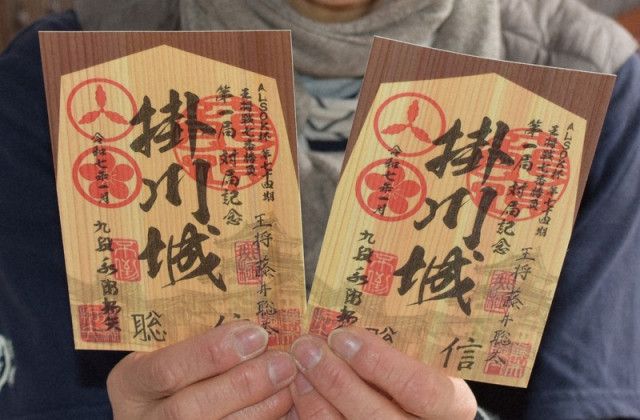 ALSOK杯第七十四期
王将戦七番勝負
第一局 対局記念
掛川城
令和七年一月
王将 藤井聡太
九段 永瀬拓矢
聡
信
ALSOK杯第七十四期
王将戦七番勝負
第一局 対局記念
掛川城
令和七年一月
王将 藤井聡太
九段 永瀬拓矢
信